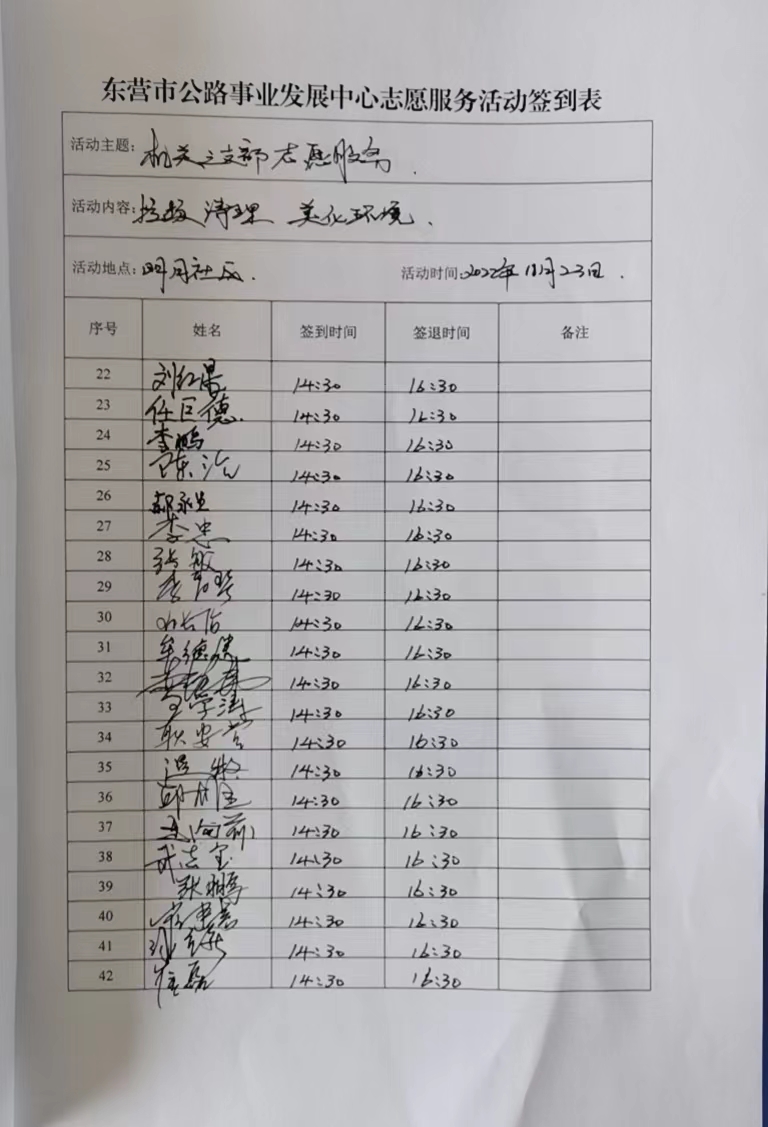 东营市公路事业发展中心志愿服务活动签到表
活动主题：机关二支部志愿服务.
活动内容：垃圾清理 美化环境.
活动地点：明月社区. 活动时间：2022年11月23日.
序号 姓名 签到时间 签退时间 备注
22 刘红 14:30 16:30
23 任巨德 14:30 16:30
24 李鹏 14:30 16:30
25 陈 14:30 16:30
26 14:30 16:30
27 李忠 14:30 16:30
28 张敏 14:30 16:30
29 14:30 16:30
30 14:30 16:30
31 14:30 16:30
32 14:30 16:30
33 14:30 16:30
34 耿安 14:30 16:30
35 温 14:30 16:30
36 14:30 16:30
37 14:30 16:30
38 武志宝 14:30 16:30
39 张鹏 14:30 16:30
40 14:30 16:30
41 14:30 16:30
42 崔磊 14:30 16:30